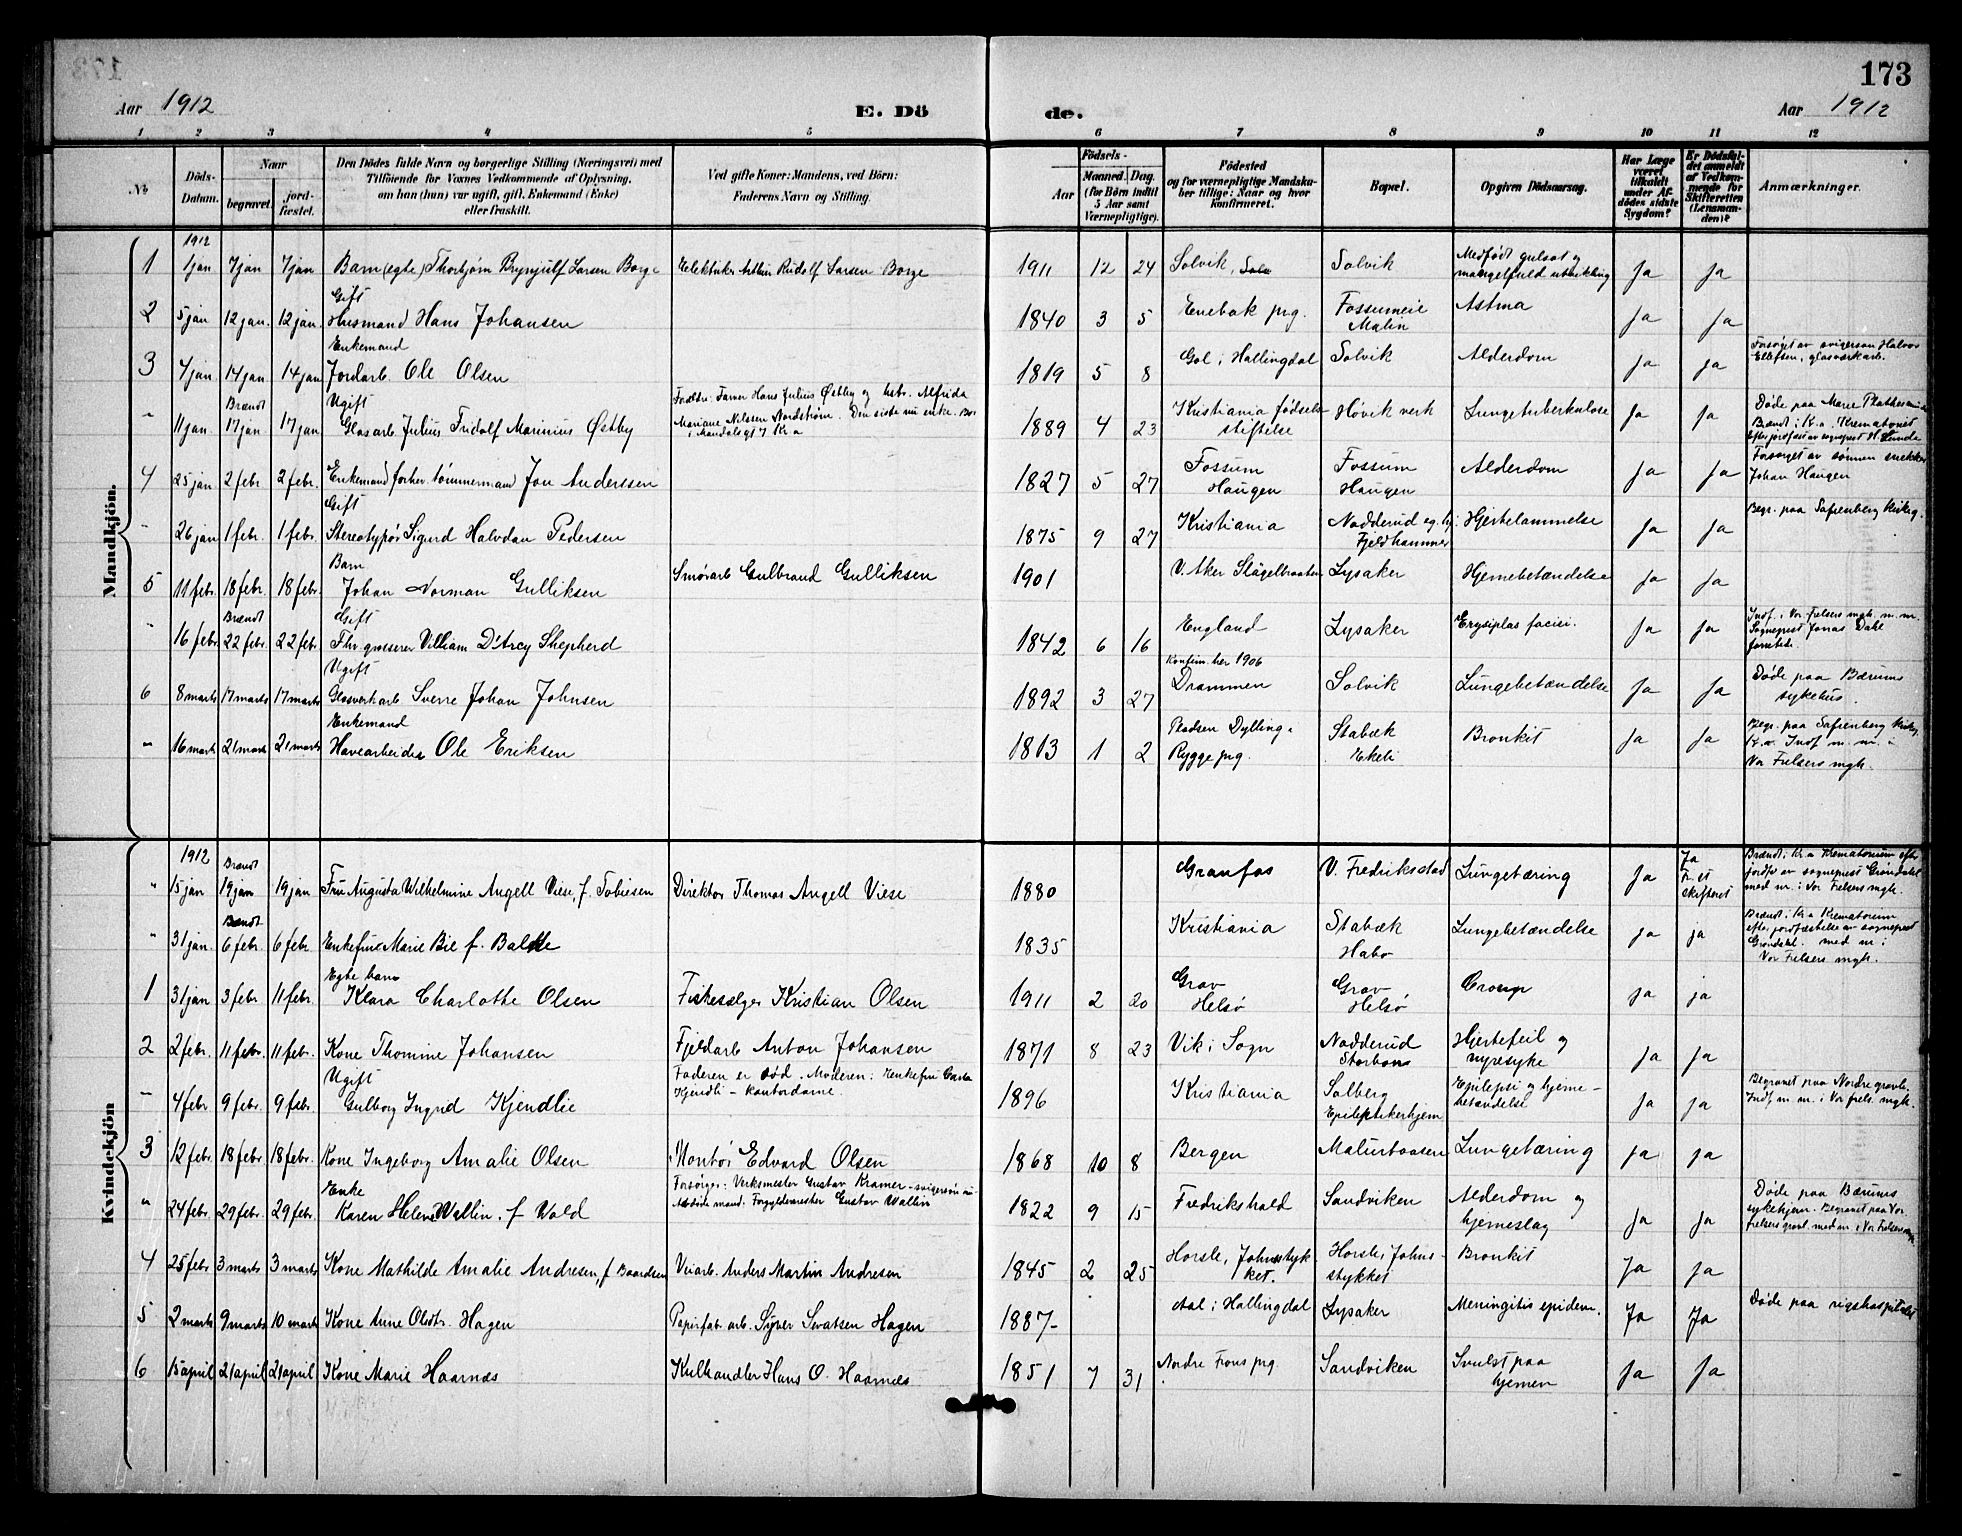 173
Aar 1912
E. Dö
de.
Aar 1912
1 2 3 4 5 6 7 8 9 10 11 12
No
Döds-Datum.
Naar
begravet. jordfæstet.
Den Dödes fulde Navn og borgerlige Stilling (Næringsvei) med
Tilföiende for Voxnes Vedkommende af Oplysning,
om han (hun) var ugift, gift, Enkemand (Enke)
eller fraskilt.
Ved gifte Koner: Mandens, ved Börn:
Faderens Navn og Stilling.
Födsels-
Aar
Maaned. Dag.
(for Børn indtil
5 Aar samt
Værnepligtige).
Födested
og for værnepligtige Mandska-
ber tillige: Naar og hvor
konfirmeret.
Bopæl.
Opgiven Dödsaarsag.
Har Læge
været
tilkaldt
under Af-
dødes sidste
Sygdom?
Er Dödsfal-
det anmeldt
af Vedkom-
mende for
Skifteretten
(Lensman-
den)?
Anmærkninger.
Mandkjön.
1912
1 1 jan 7 jan 7 jan Barn (egte) Thorbjørn Brynjulf Larsen Borge Elektriker Arthur Rudolf Larsen Borge 1911 12 24 Solvik, Solvik Medfødt gulsot og
mangelfuld utvikling Ja Ja
Gift
2 5 jan 12 jan. 12 jan. Husmand Hans Johansen 1840 3 5 Enebak prg. Fossumeie
Malin Astma Ja Ja
Enkemand
3 4 jan 14 jan. 14 jan Jordarb. Ole Olsen 1819 5 8 Gol i Hallingdal Solvik Alderdom Ja Ja Forsørget av svigersøn Halvor
Ellefsen, glasverkarb.
Brændt Ugift
" 11 jan. 17 jan. 17 jan Glasarb. Julius Fridolf Marinius Østby Forældre: Farver Hans Julius Østby og hustr. Alfrida
Mariane Nilssen Nordstrøm. Den siste nu enke. Bor
i Mandalsgt 7 Kr.a 1889 4 23 Kristiania fødsels
stiftelse Høvik verk Lungetuberkulose Ja Ja Døde paa Marie
Brændt i Kr.a Krematoriet
Efter jordfæst av sogneprest H. Lunde
4 25 jan 2 febr 2 febr. Enkemand forhen tømmermand Jon Anderssen 1827 5 27 Fossum
Haugen Fossum
Haugen Alderdom Ja Ja Forsørget av sønnen snekker
Johan Haugen
Gift
" 26 jan 1 febr. 1 febr. Stereotypør Sigurd Halvdan Pedersen 1875 9 27 Kristiania Nadderud
Fjeldhammer Hjertelammelse Ja Ja Begr. paa Sofienberg Kirkeg.
Barn
5 11 febr. 18 febr. 18 febr. Johan Norman Gulliksen Smørarb Gulbrand Gulliksen 1901 V. Aker Slagelbraaten Lysaker Hjernebetændelse Ja Ja
Brændt Gift
" 16 febr. 22 febr 22 febr Villiam D'Arcy Shepherd 1842 6 16 England Lysaker Erysiplas facisi. Ja Ja Indf. i Vor Frelsers mgh. m. nr.
Sogneprest Jonas Dahl
forrettede
Ugift Konfirm. her 1906
6 8 marts 17 marts 17 marts Glasverkarb Sverre Johan Johnsen 1892 3 27 Drammen Solvik Lungebetændelse Ja Ja Døde paa Bærums
sykehus.
Enkemand
" 16 marts 21 marts 21 marts Havearbeider Ole Eriksen 1813 1 2 Pladsen Dylling i
Rygge prg. Stabæk
Ekeli Bronkit Ja Ja Begr. paa Sofienberg Kirkeg.
Kr.a. Indf m. nr. i
Vor Frelsers mgh.
Kvindekjön
1912 Brændt
" 15 jan 19 jan 19 jan Fru Augusta Wilhelmine Angell Viese, f. Tobiesen Direktør Thomas Angell Viese 1880 Granfos V. Fredriksstad Lungetæring Ja Ja
Fr. st
skifteret Brændt i Kr.a Krematorium efter
jordf av sogneprest Grøndahl
med nr. i Vor Frelsers mgh.
Brændt
" 31 jan. 6 febr. 6 febr. Enkefru Marie Bie f. Balke 1835 Kristiania Stabæk
Habo Lungebetændelse ja ja Brændt i Kr.a Krematorium
efter jordfæstelse av sogneprest
Grøndahl. med nr. i
Vor Frelsers mgh.
Egte barn
1 31 jan 3 febr 11 febr. Klara Charlotte Olsen Fiskesælger Kristian Olsen 1911 2 20 Grav
Helsø Grav
Helsø Croup ja ja
2 2 febr. 11 febr. 11 febr. Kone Thomine Johansen Fjeldarb Anton Johansen 1871 8 23 Vik i Sogn Nadderud
Hjertefeil og
nyresyke Ja Ja
Ugift
" 4 febr 9 febr. 9 febr. Gulborg Ingrid Kjendlie Faderen er død. Moderen: Enkefru
Kjendli - kontordame. 1896 Kristiania Solberg
Epileptikerhjem Epilepsi og hjerne-
betændelse Ja Ja Begravet paa Nordre gravl.
Indf m nr. i Vor frels. mgh.
3 12 febr. 18 febr. 18 febr. Kone Ingeborg Amalie Olsen Montør Edvard Olsen 1868 10 8 Bergen Malurbaasen Lungetæring ja ja
Enke
" 24 febr. 29 febr. 29 febr. Karen Helene Wallin. f. Wold Forsørger: Verksmester Gustav Kramer - svigersøn
Avdøde mand: Forgyldermester Gustav Wallin 1822 9 15 Fredrikshald Sandviken Alderdom og
hjerneslag Ja Ja Døde paa Bærums
sykehjem. Begravet paa Vor
Frelsers gravl. med nr. i Vor Frelsers mgh
4 25 febr 3 marts 3 marts Kone Mathilde Amalie Andresen, f Baardsen Veiarb. Anders Martin Andresen 1845 2 25 Horsle, Johnsstyk-
ket. Horsle, Johns-
stykket Bronkit Ja Ja
5 2 marts 9 marts 10 marts Kone Anne Olsdtr. Hagen Papirfab. arb. Syver Sevatsen Hagen 1887- Aal i Hallingdal Lysaker Meningitis epidem. Ja Ja Døde paa rigshospitalet
6 15 april 21 april 21 april Kone Marie Haarnæs Kulhandler Hans O. Haarnæs 1851 7 31 Nordre Frons prg. Sandviken Svulst paa
hjernen Ja Ja